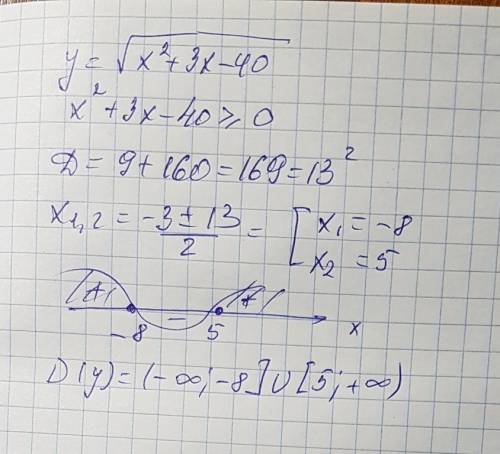 y = √(x² + 3x - 40)
x² + 3x - 40 ⩾ 0
D = 9 + 160 = 169 = 13²
x₁,₂ = (-3 ± 13)/2 = [ x₁ = -8
x₂ = 5
+ - +
-8 5 x
D(y) = (-∞; -8] ∪ [5; +∞)